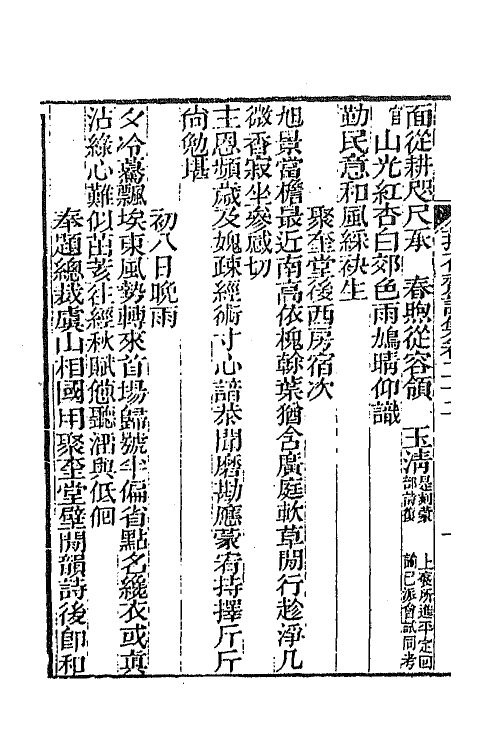 面從耕咫尺承　春煦從容領　玉清是刻蒙上褒所進平定回部詩復諭已派會試同考
官山光紅杏白郊色雨鳩晴仰識
勤民意和風綵袂生
聚奎堂後西房宿次
旭景當檐最近南高依槐榦葉猶含廣庭軟草閒行趁淨几
微香寂坐參感切
主恩頻歲及媿疎經術寸心諳恭聞磨勘應蒙宥持擇斤斤
尙勉堪
初八日晩雨
夕冷驀飄埃東風勢轉來首場歸號半偏省點名纔衣或真
沾綠心難似茁荄往經秋賦他聽洒與低佪
奉題總裁虞山相國用聚奎堂壁間韻詩後卽和